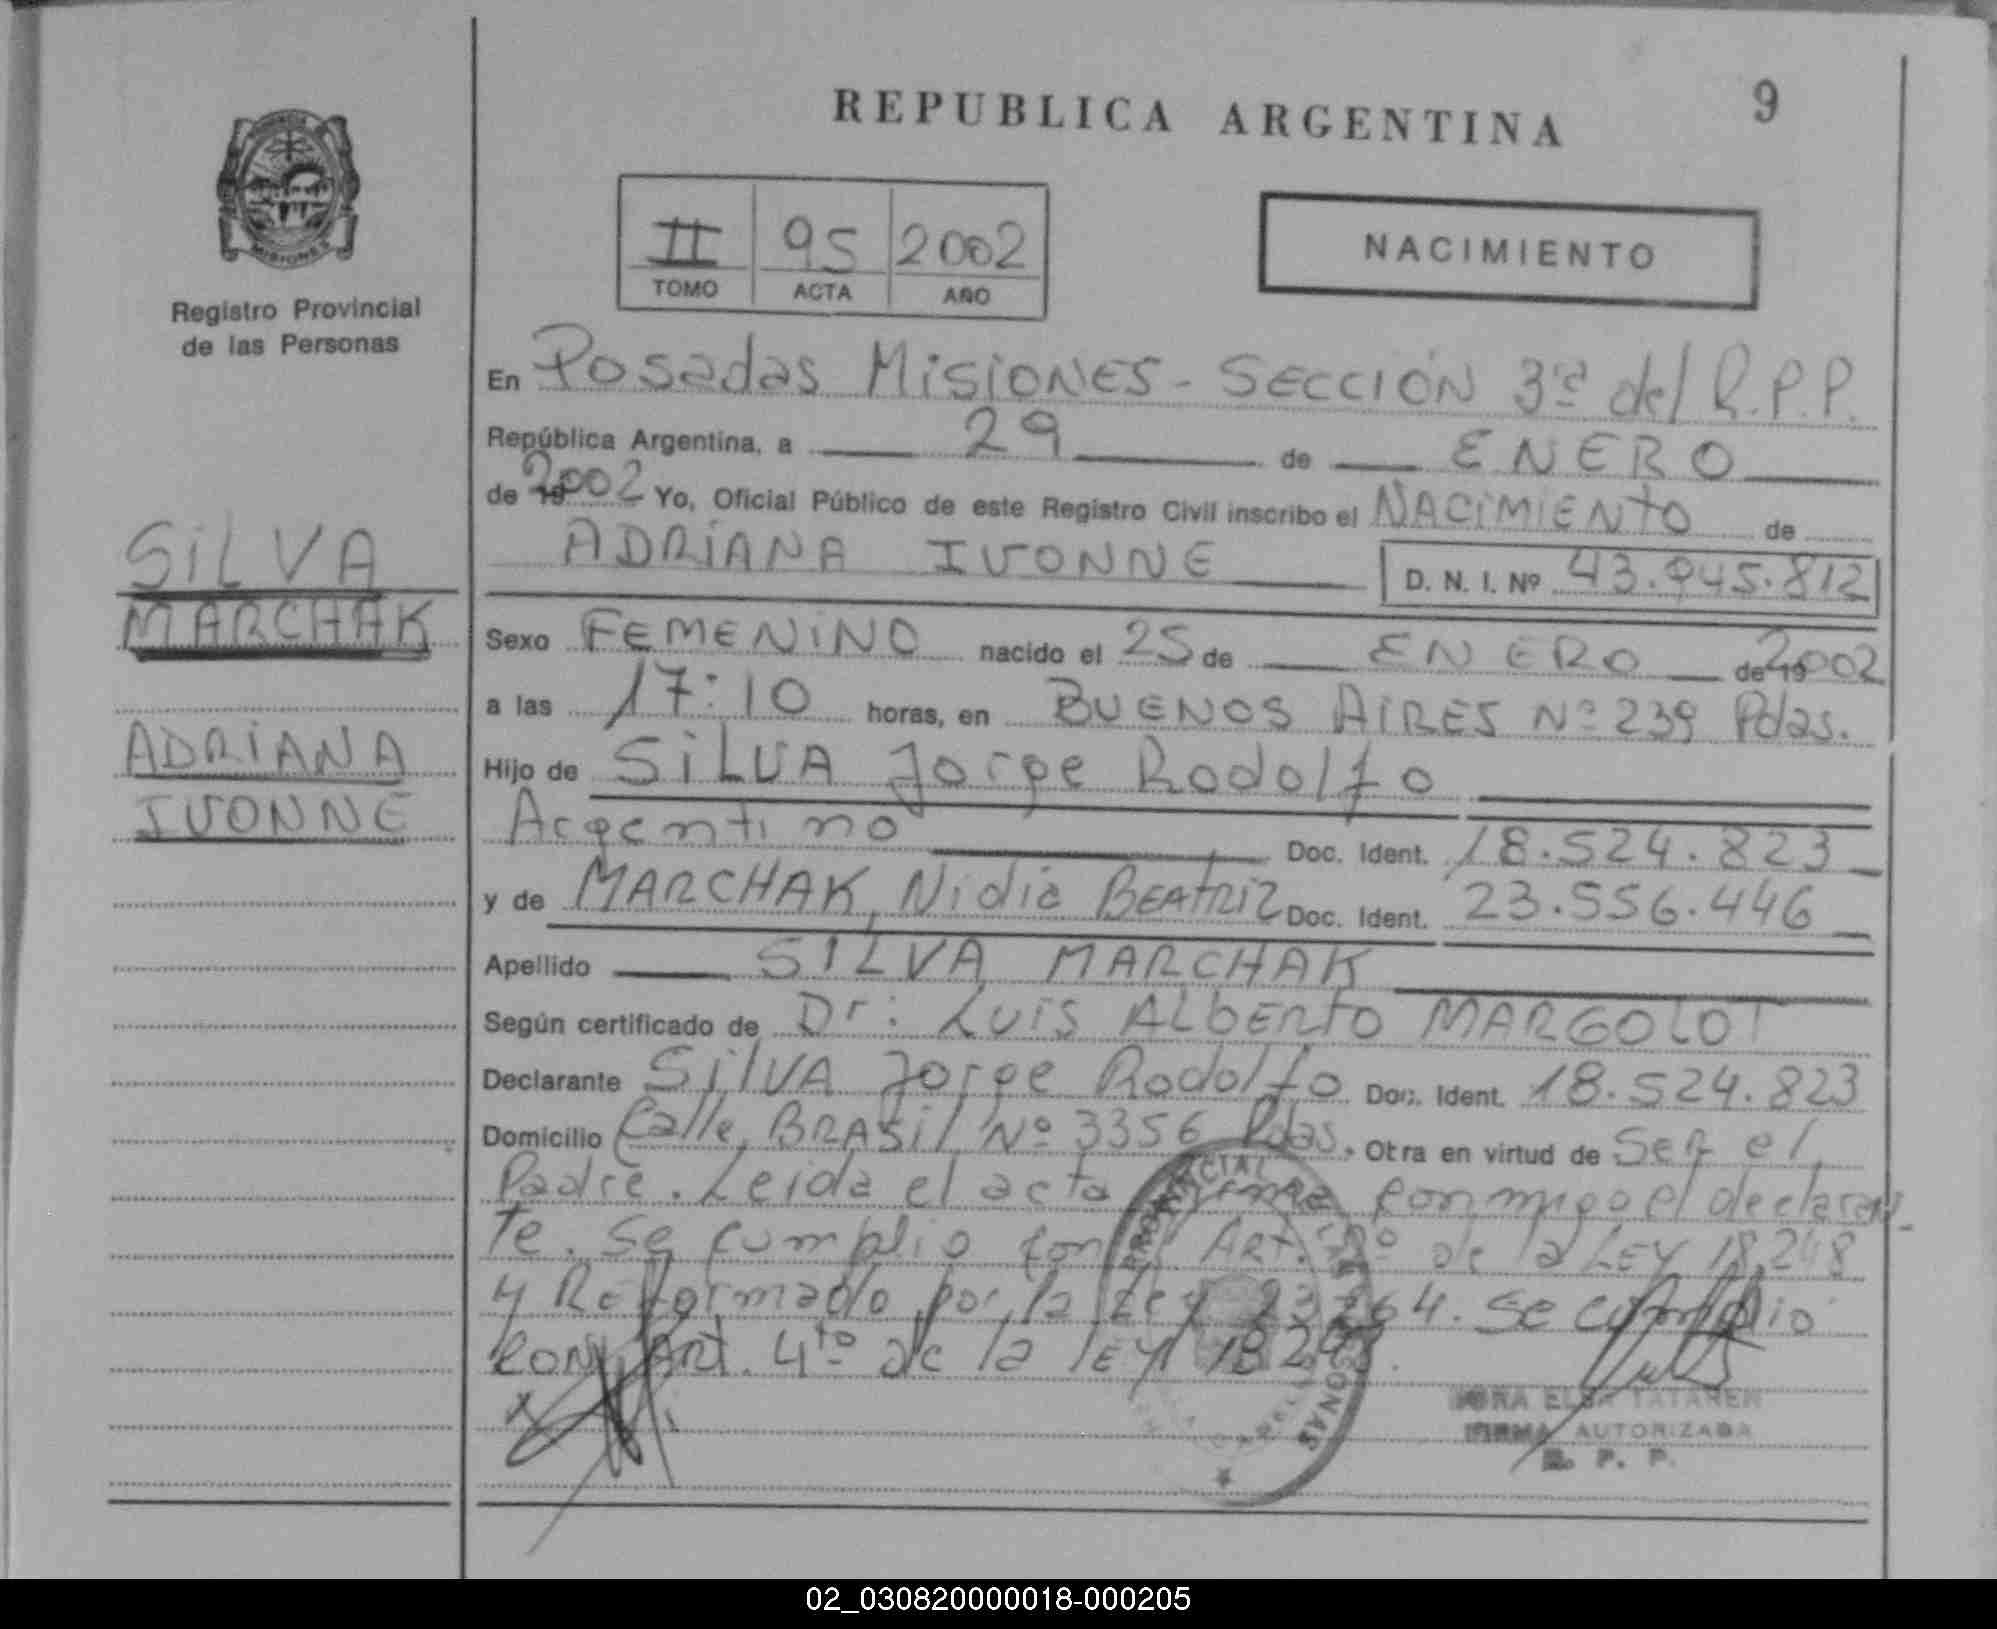 REPUBLICA ARGENTINA
9
MISIONES
Registro Provincial
de las Personas
II 95 2002
TOMO ACTA AÑO
NACIMIENTO
En Posadas Misiones - SECCIÓN 3ra del R.P.P.
República Argentina, a 29 de ENERO
de 2002 Yo, Oficial Público de este Registro Civil inscribo el NACIMIENTO de
ADRIANA IVONNE D. N. I. Nº 43.945.812
SILVA
MARCHAK
ADRIANA
IVONNE
Sexo FEMENINO nacido el 25 de ENERO de 2002
a las 17:10 horas, en BUENOS AIRES Nº 239 Pdas.
Hijo de SILVA Jorge Rodolfo
Argentino Doc. Ident. 18.524.823
y de MARCHAK, Nidia BEATRIZ Doc. Ident. 23.556.446
Apellido SILVA MARCHAK
Según certificado de Dr: Luis ALBERTO MARGOLOT
Declarante SilVA Jorge Rodolfo Doc. Ident. 18.524.823
Domicilio Calle, BRASil Nº 3356 Pdas. Otra en virtud de Ser el
Padre. Leida el acta firma conmigo el declaran-
te. Se cumplio con Art. de la LEY 18.248
y Reformado por la Ley 23264. Se cumplio
CON ART. 4to de la LEY 18248.
TATAREN
FIRMA AUTORIZADA
R. P. P.
02_030820000018-000205